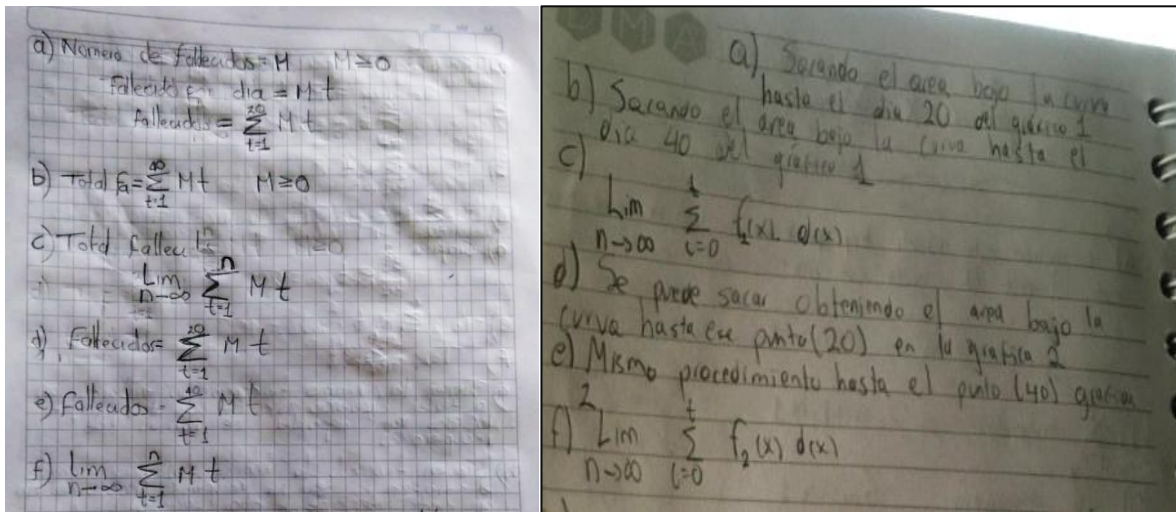 a) Numero de fallecidos = M M ≥ 0
Fallecido en dia = M t
fallecidos = 20 ∑ t=1 M t
b) Total fa = ∞ ∑ t=1 M t M ≥ 0
c) Total fallecidos = 0
Lim n→∞ n ∑ t=1 M t
d) Fallecidos = 20 ∑ t=1 M t
e) fallecidos = 40 ∑ t=1 M t
f) lim n→∞ n ∑ t=1 M t
D M A
a) Sacando el area bajo la curva
hasta el dia 20 del gráfico 1
b) Sacando el área bajo la curva hasta el
dia 40 del gráfico 1
c)
Lim n→∞ t ∑ i=0 f₁(x). d(x)
d) Se puede sacar obteniendo el area bajo la
curva hasta ese punto (20) en la grafica 2
e) Mismo procedimiento hasta el punto (40) grafica
2
f) Lim n→∞ t ∑ i=0 f₂(x) d(x)